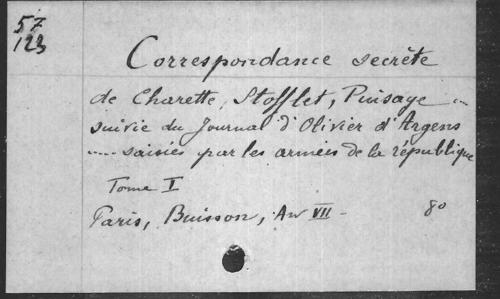 57
123
Correspondance secrète
de Charette, Stofflet, Puisaye ...
suivie du Journal d'Olivier d'Argens
..... saisies par les armées de la république
Tome I
Paris, Buisson, An VII - 8o